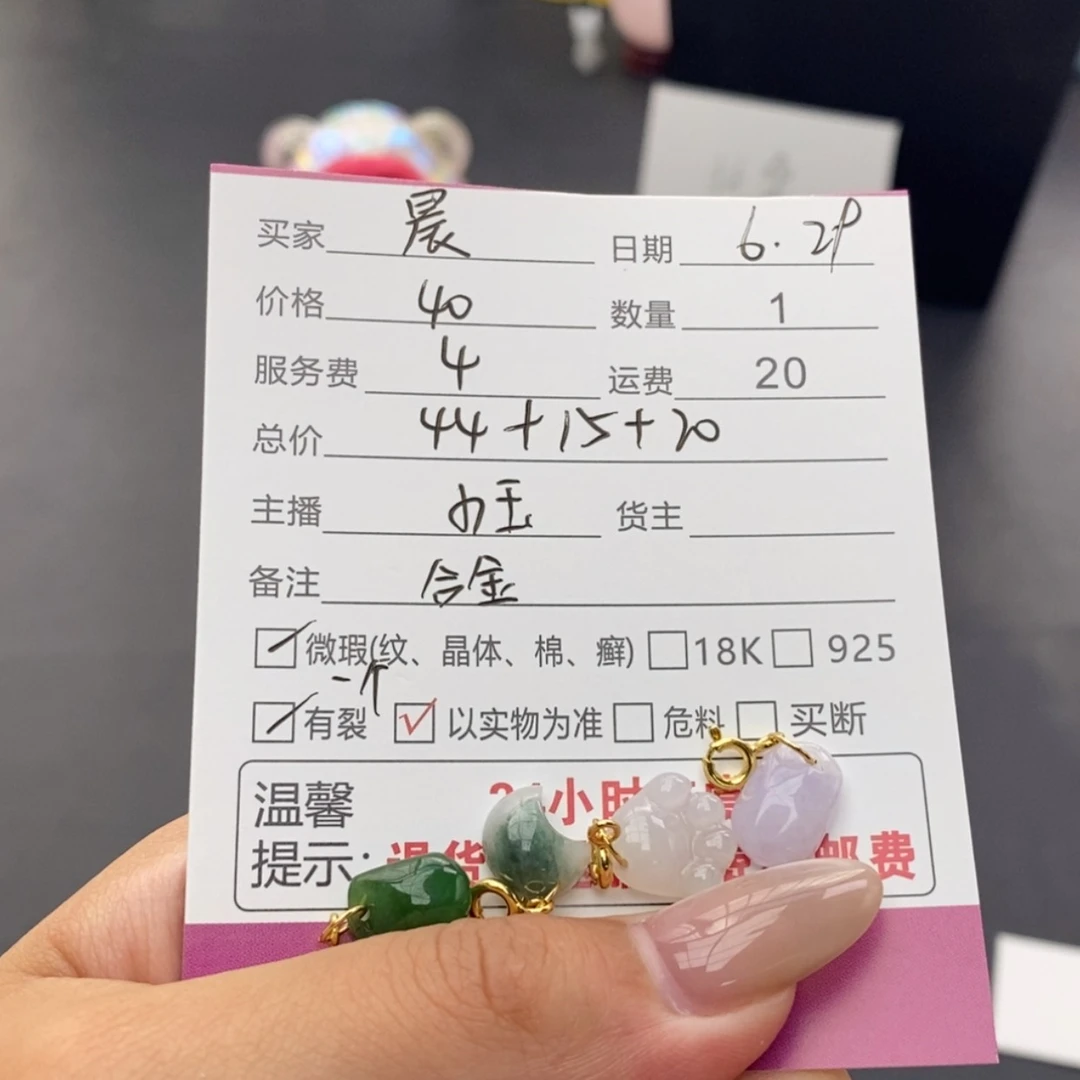 买家 晨 日期 6.29
价格 40 数量 1
服务费 4 运费 20
总价 44+15+20
主播 货主
备注 合金
微瑕(纹、晶体、棉、癣) 18K 925
一个
有裂 以实物为准 危料 买断
温馨 小时
提示: 退货 邮费